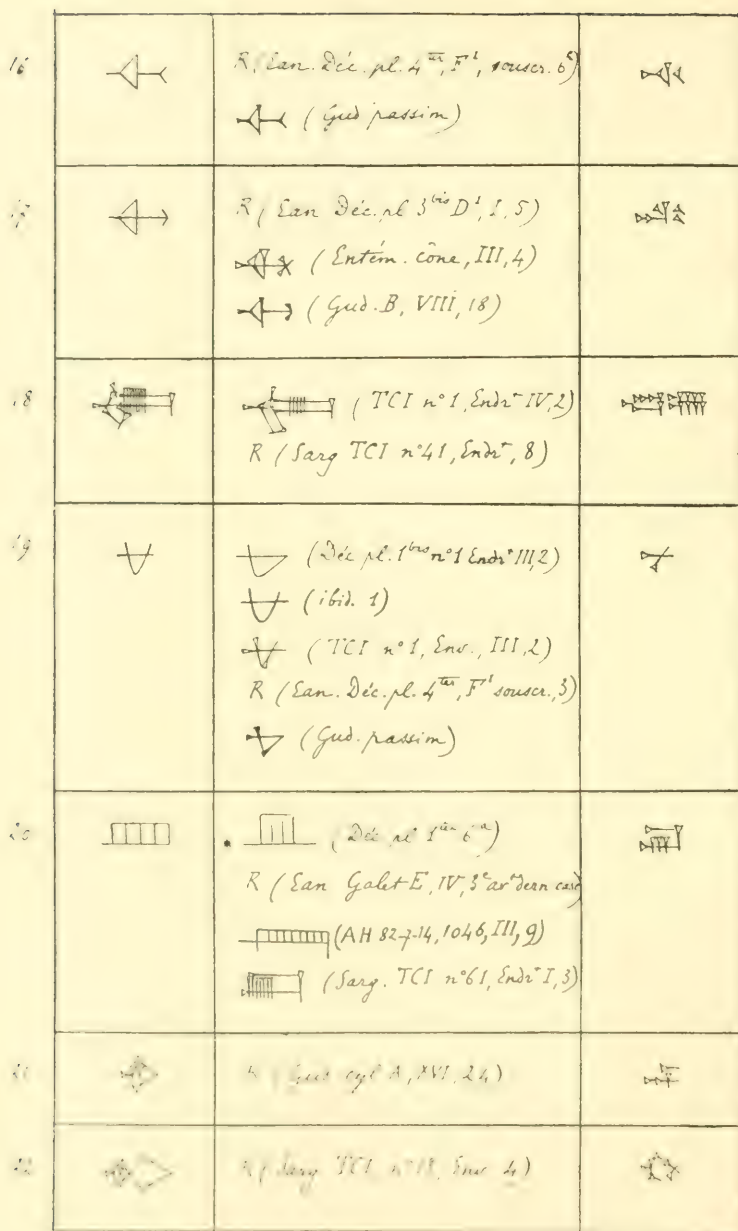 16 R (Ean. Déc. pl. 4ᵗᵉʳ, F¹, souscr. 6ᵉ)
(Gud passim)
R (Ean Déc. pl 3ᵇⁱˢ D¹, I, 5)
(Entém. cône, III, 4)
(Gud. B, VIII, 18)
18 (TCI n° 1, Endrᵗ IV, 2)
R (Sarg TCI n° 41, Endrᵗ, 8)
19 (Déc pl. 1ᵇⁱˢ n° 1 Endrᵗ III, 2)
(ibid. 1)
(TCI n° 1, Env., III, 2)
R (Ean. Déc. pl. 4ᵗᵉʳ, F¹ souscr., 3)
(Gud. passim)
20 (Déc pl 1ᵗᵉʳ 6ᵃ)
R (Ean Galet E, IV, 3ᵉ avᵗ dern case)
(AH 82-7-14, 1046, III, 9)
(Sarg. TCI n° 61, Endrᵗ I, 3)
21 R (Gud cyl A, XVI, 24)
22 R (Sarg TCI n° 18, Env 4)